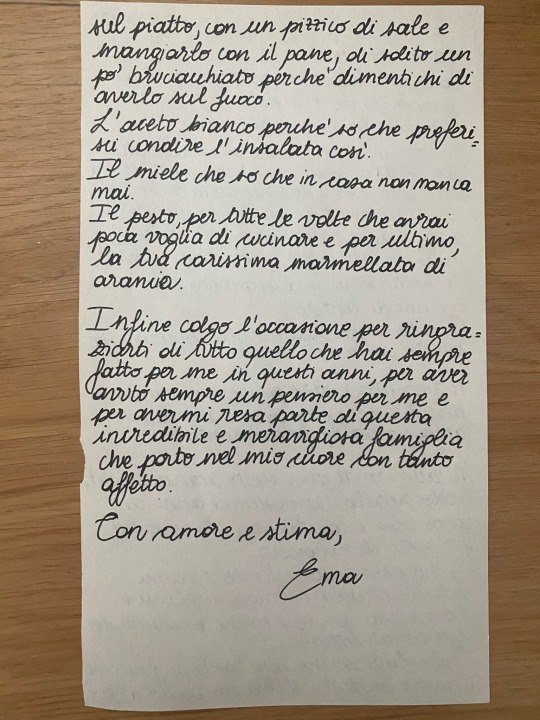 sul piatto, con un pizzico di sale e
mangiarlo con il pane, di solito un
po' bruciacchiato perche' dimentichi di
averlo sul fuoco.
L'aceto bianco perche' so che preferi=
sci condire l'insalata cosi'.
Il miele che so che in casa non manca
mai.
Il pesto, per tutte le volte che avrai
poca voglia di cucinare e per ultimo,
la tua carissima marmellata di
arancia.
Infine colgo l'occasione per ringra=
ziarti di tutto quello che hai sempre
fatto per me in questi anni, per aver
avuto sempre un pensiero per me e
per avermi resa parte di questa
incredibile e meravigliosa famiglia
che porto nel mio cuore con tanto
affetto.
Con amore e stima,
Ema